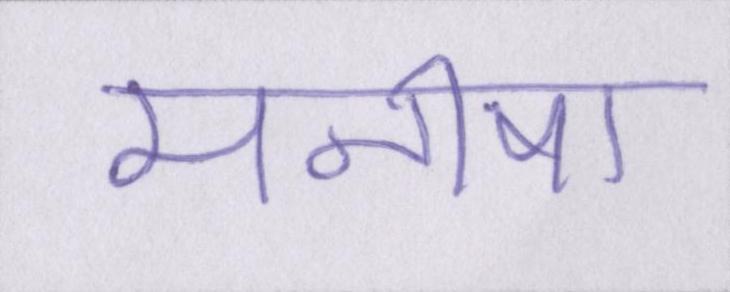 मनीषा